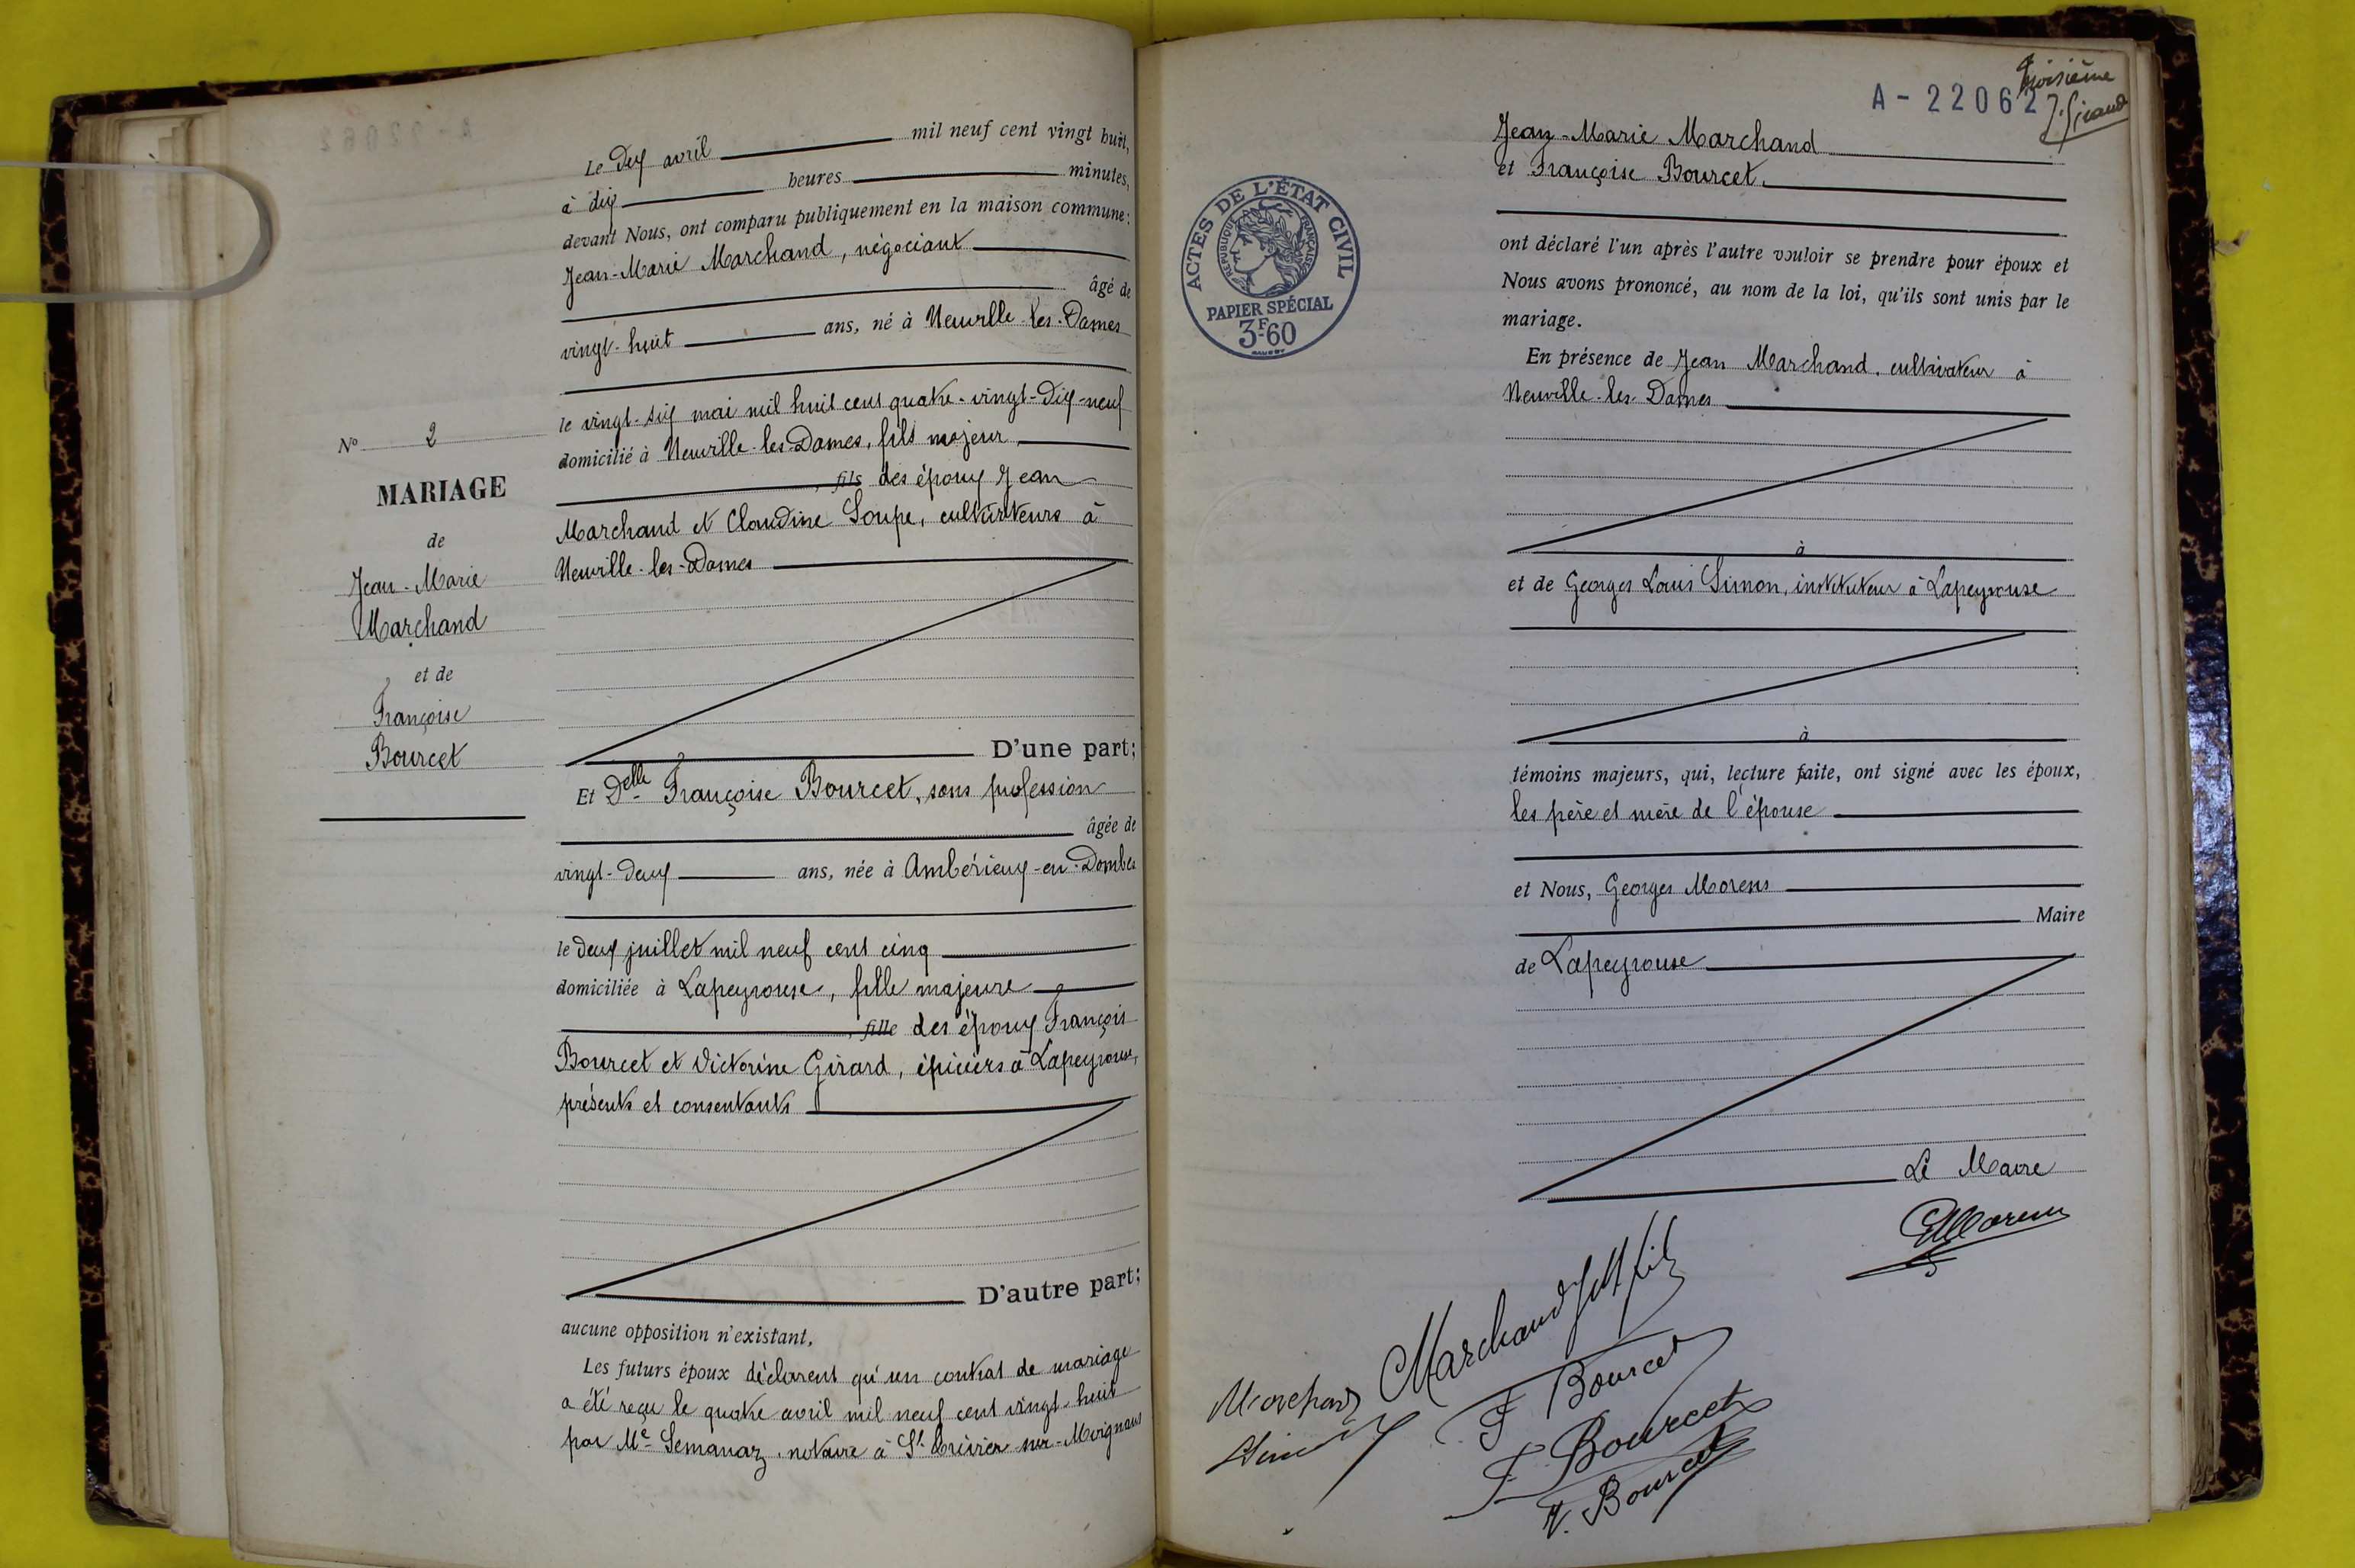 Le dix avril mil neuf cent vingt huit,
à dix heures minutes,
devant Nous, ont comparu publiquement en la maison commune:
Jean-Marie Marchand, négociant
âgé de
vingt-huit ans, né à Neuville-les-Dames
le vingt-six mai mil huit cent quatre-vingt-dix-neuf
domicilié à Neuville-les-Dames, fils majeur
, fils des époux Jean
Marchand et Claudine Soupe, cultivateurs à
Neuville-les-Dames
N° 2
MARIAGE
de
Jean-Marie
Marchand
et de
Françoise
Bourcet
D'une part;
Et Delle Françoise Bourcet, sans profession
âgée de
vingt-deux ans, née à Ambérieux-en-Dombes
le deux juillet mil neuf cent cinq
domiciliée à Lapeyrouse, fille majeure
, fille des époux François
Bourcet et Victorine Girard, épiciers à Lapeyrouse,
présents et consentants
D'autre part;
aucune opposition n'existant,
Les futurs époux déclarent qu'un contrat de mariage
a été reçu le quatre avril mil neuf cent vingt-huit
par Me Semanaz, notaire à St Trivier-sur-Moignans
A-22062
Troisième
J. Giraud
Jean-Marie Marchand
et Françoise Bourcet.
ACTES DE L'ÉTAT CIVIL
RÉPUBLIQUE FRANÇAISE
PAPIER SPÉCIAL
3F60
ont déclaré l'un après l'autre vouloir se prendre pour époux et
Nous avons prononcé, au nom de la loi, qu'ils sont unis par le
mariage.
En présence de Jean Marchand, cultivateur à
Neuville-les-Dames
à
et de Georges Louis Simon, instituteur à Lapeyrouse
à
témoins majeurs, qui, lecture faite, ont signé avec les époux,
les père et mère de l'épouse
et Nous, Georges Morens
Maire
de Lapeyrouse
Le Maire
GMorens
Marchand JM fils
Marchand
F Bourcet
Simon
F Bourcet
V. Bourcet